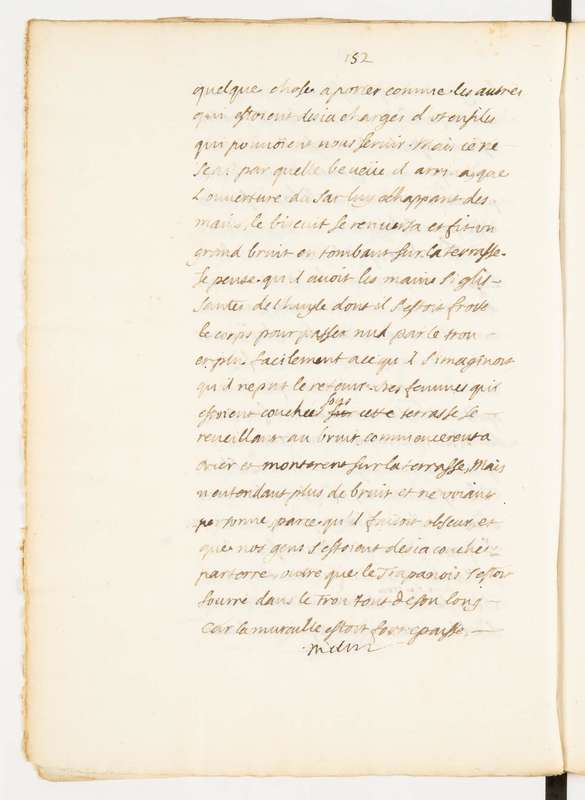 152
quelque chose aporter comme les autres
qui estoient desia chargés d'ustensiles
qui pouuoient nous seruir. Mais ie ne
scai par quelle beueüe il arriua que
L'ouuerture du sac luy échappant des
mains, le biscuit se renuersa et fit vn
grand bruit en tombant sur la terrasse.
Je pense qu'il auoit les mains si glis-
santes de l'huyle dont il s'estoit frotté
le corps pour passer nud par le trou
et plus facilement ace qu'il s'imaginoit
qu'il ne put le retenir. Des femmes qui
estoient couchées sur sous cette terrasse se
reueillant au bruit, commencerent a
crier et monterent sur la terrasse, Mais
n'entendant plus de bruit et ne voiant
personne, parce qu'il faisoit obscur, et
que nos gens s'estoient desia couchés
par terre, outre que le Trapanois s'estoit
fourré dans le trou tout de son long
Car la muraille estoit fort epaisse,